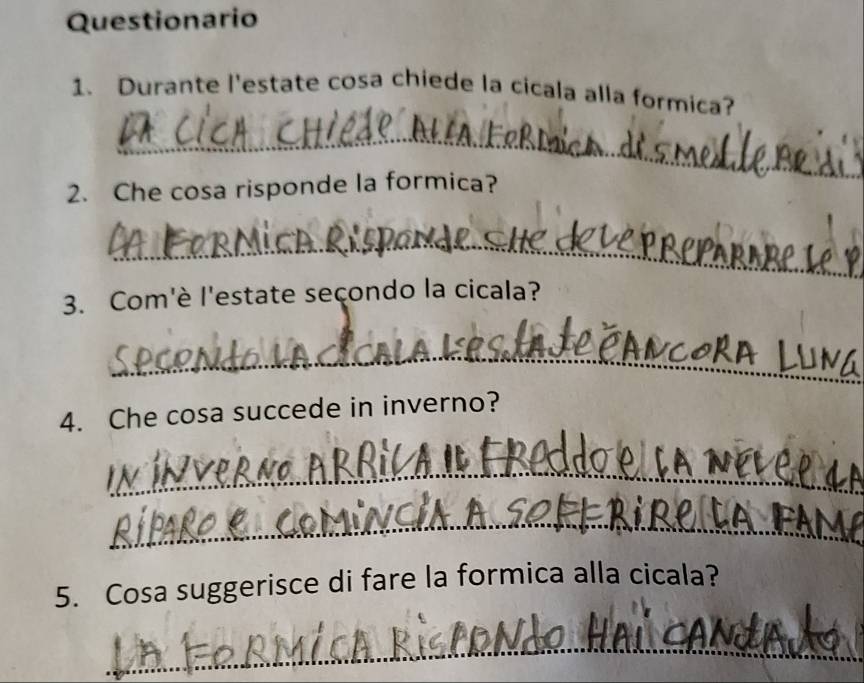 Questionario
1. Durante l'estate cosa chiede la cicala alla formica?
LA CiCA CHiede ALLA FORMiCA di smettere di
2. Che cosa risponde la formica?
LA FORMiCA RiSPONde CHe deve PRePARARe le P
3. Com'è l'estate secondo la cicala?
SeCONdO LA CiCALA L'estAte è ANCORA LUNG
4. Che cosa succede in inverno?
IN iNVeRNO ARRiVA IL FReddo e LA Neve e LA
RiPARO e COMiNCiA A SOFFRiRe LA FAMe
5. Cosa suggerisce di fare la formica alla cicala?
LA FORMiCA RiSPONdO HAi CANtAtO